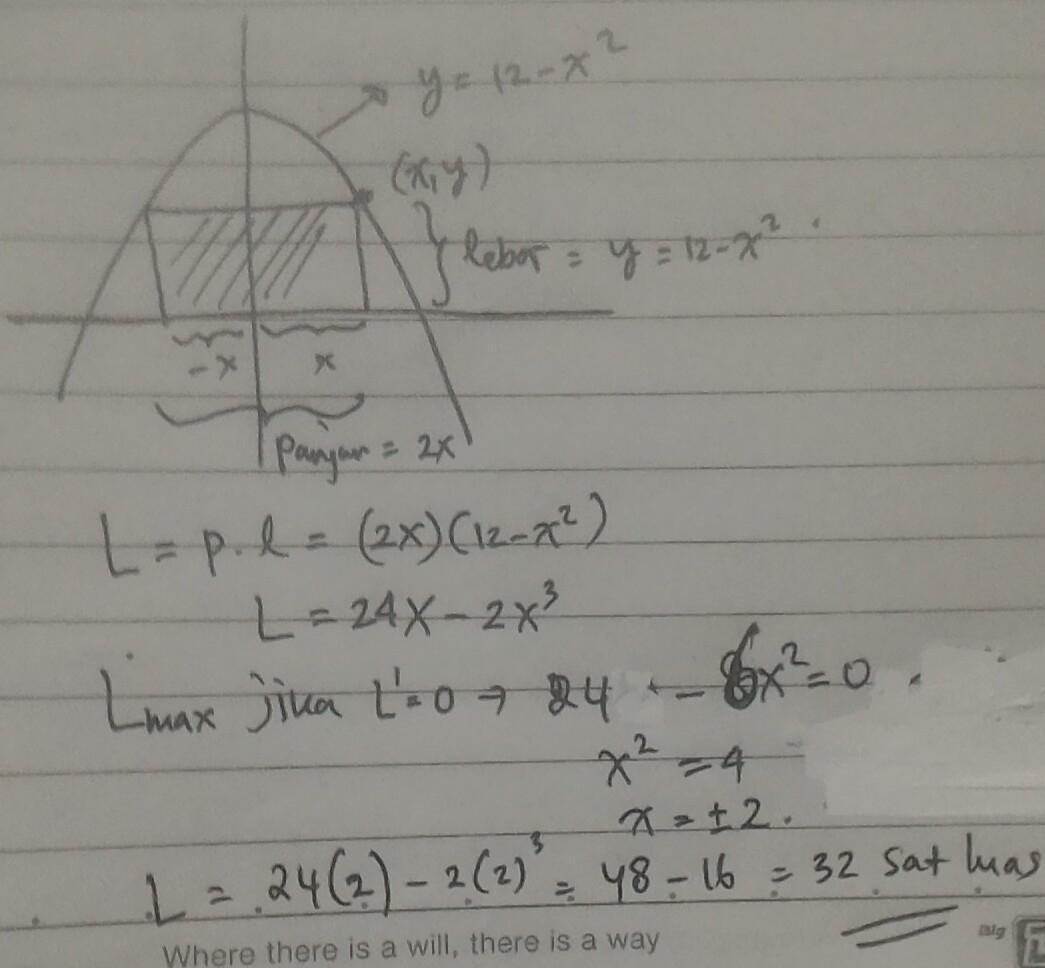 y = 12 - x²
(x, y)
lebar = y = 12 - x²
-x x
Panjang = 2x
L = p . l = (2x)(12-x²)
L = 24x - 2x³
Lmax jika L' = 0 → 24 - 6x² = 0
x² = 4
x = ± 2.
L = 24(2) - 2(2)³ = 48 - 16 = 32 sat luas
Where there is a will, there is a way